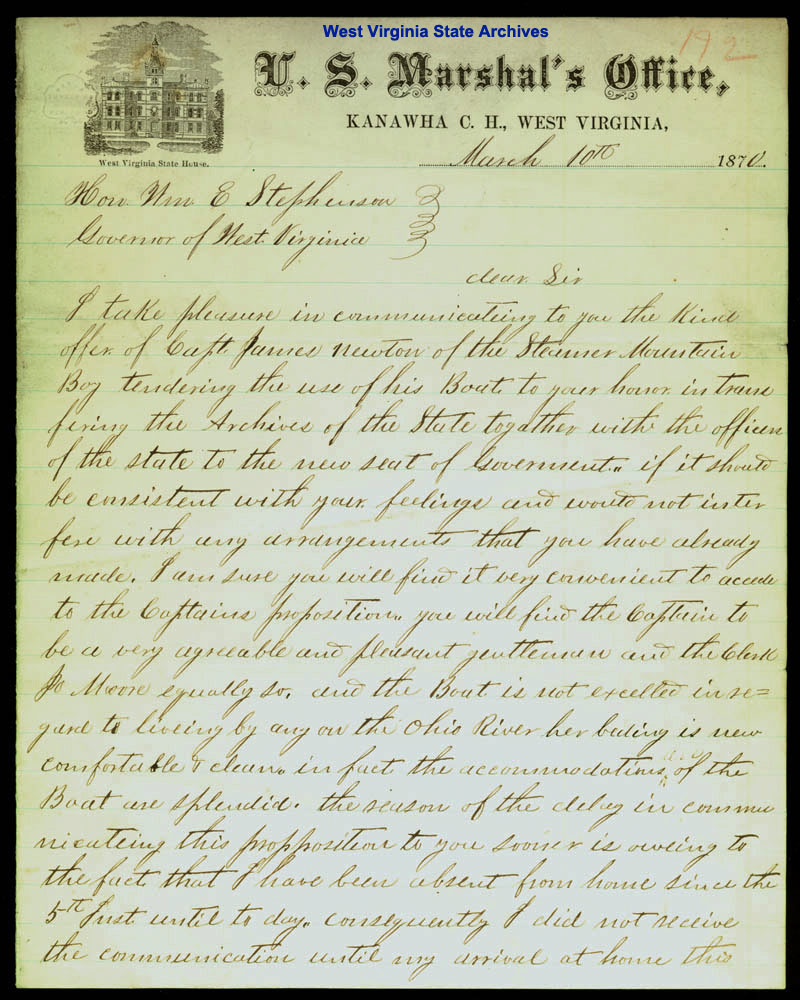 West Virginia State Archives
192
U. S. Marshal's Office,
KANAWHA C. H., WEST VIRGINIA,
West Virginia State House.
March 10th 1870.
Hon. Wm. E Stephenson
Governor of West Virginia
dear Sir
I take pleasure in communicateing to you the Kind
offer of Capt. James Newton of the Steamer Mountain
Boy tendering the use of his Boat to your honor in trans
fering the Archives of the State together with the officers
of the state to the new seat of Goverment.. if it should
be consistent with your feelings and would not inter
fere with any arrangements that you have already
made. I am sure you will find it very convenient to accede
to the Captains proposition.. you will find the Captain to
be a very agreeable and pleasant gentleman and the Clerk
Jo Moore equally so. and the Boat is not excelled in re=
gard to liveing by any on the Ohio River her beding is new
comfortable & clean. in fact the accommodations of the
Boat are splendid. the reason of the delay in commu
nicateing this propposition to you sooner is oweing to
the fact that I have been absent from home since the
5th Inst until to day. consequently I did not receive
the communication until my arrival at home this